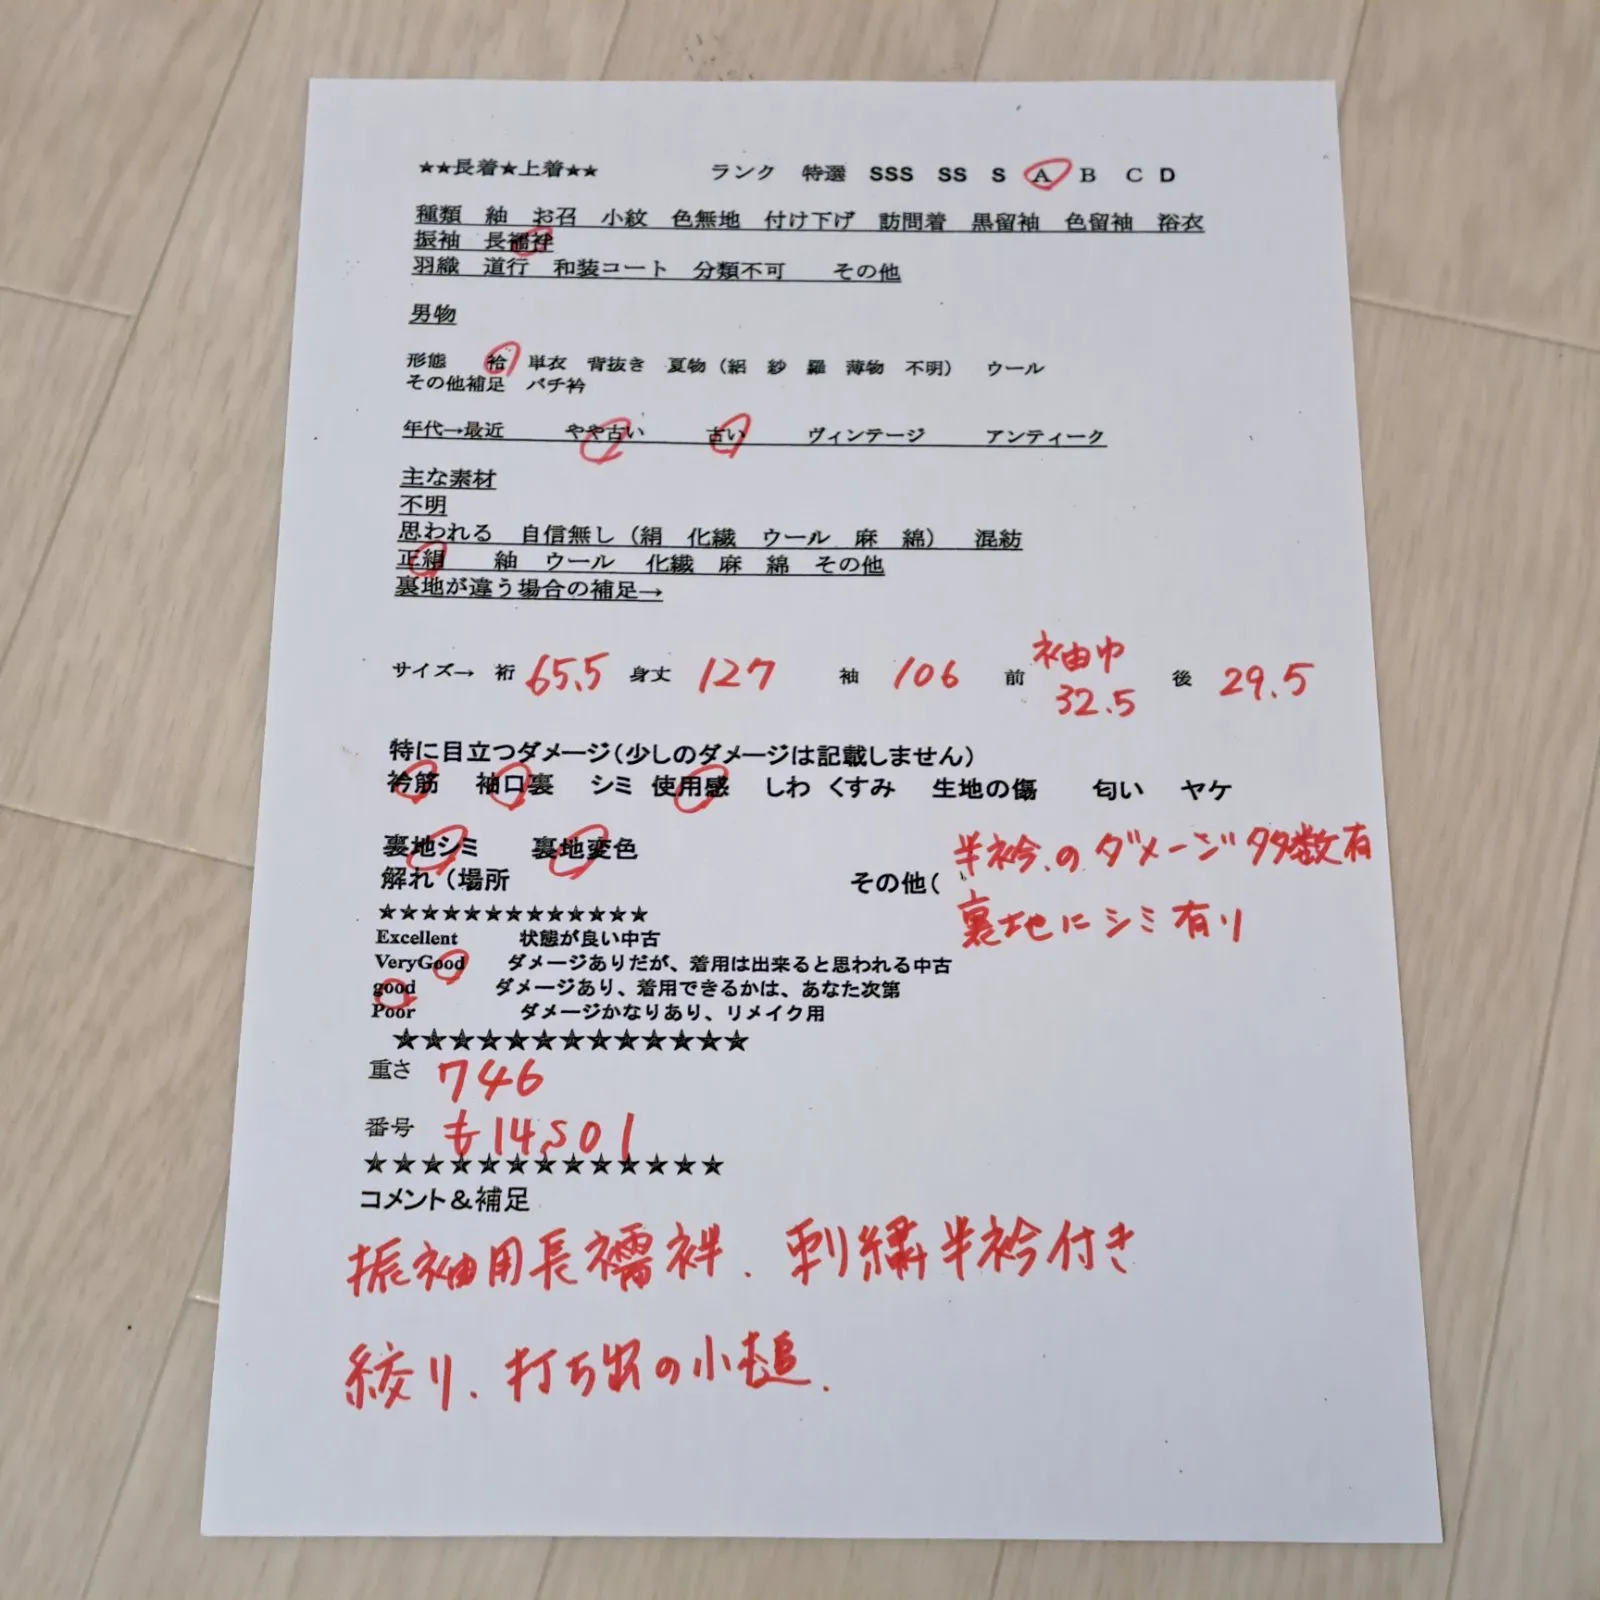 ★★長着★上着★★　ランク　特選　SSS　SS　S　A　B　C　D
種類　紬　お召　小紋　色無地　付け下げ　訪問着　黒留袖　色留袖　浴衣
振袖　長襦袢
羽織　道行　和装コート　分類不可　その他
男物
形態　袷　単衣　背抜き　夏物（絽　紗　羅　薄物　不明）　ウール
その他補足　バチ衿
年代→最近　やや古い　古い　ヴィンテージ　アンティーク
主な素材
不明
思われる　自信無し（絹　化繊　ウール　麻　綿）　混紡
正絹　紬　ウール　化繊　麻　綿　その他
裏地が違う場合の補足→
サイズ→　裄　65.5　身丈　127　袖　106　前　袖巾　32.5　後　29.5
特に目立つダメージ（少しのダメージは記載しません）
衿筋　袖口裏　シミ　使用感　しわ　くすみ　生地の傷　匂い　ヤケ
裏地シミ　裏地変色
解れ（場所　その他（　半衿のダメージ多数有
裏地にシミ有り
★★★★★★★★★★★★★
Excellent　状態が良い中古
VeryGood　ダメージありだが、着用は出来ると思われる中古
good　ダメージあり、着用できるかは、あなた次第
Poor　ダメージかなりあり、リメイク用
★★★★★★★★★★★★★
重さ　746
番号　も14501
★★★★★★★★★★★★★
コメント＆補足
振袖用長襦袢、刺繍半衿付き
絞り、打ち出の小槌、